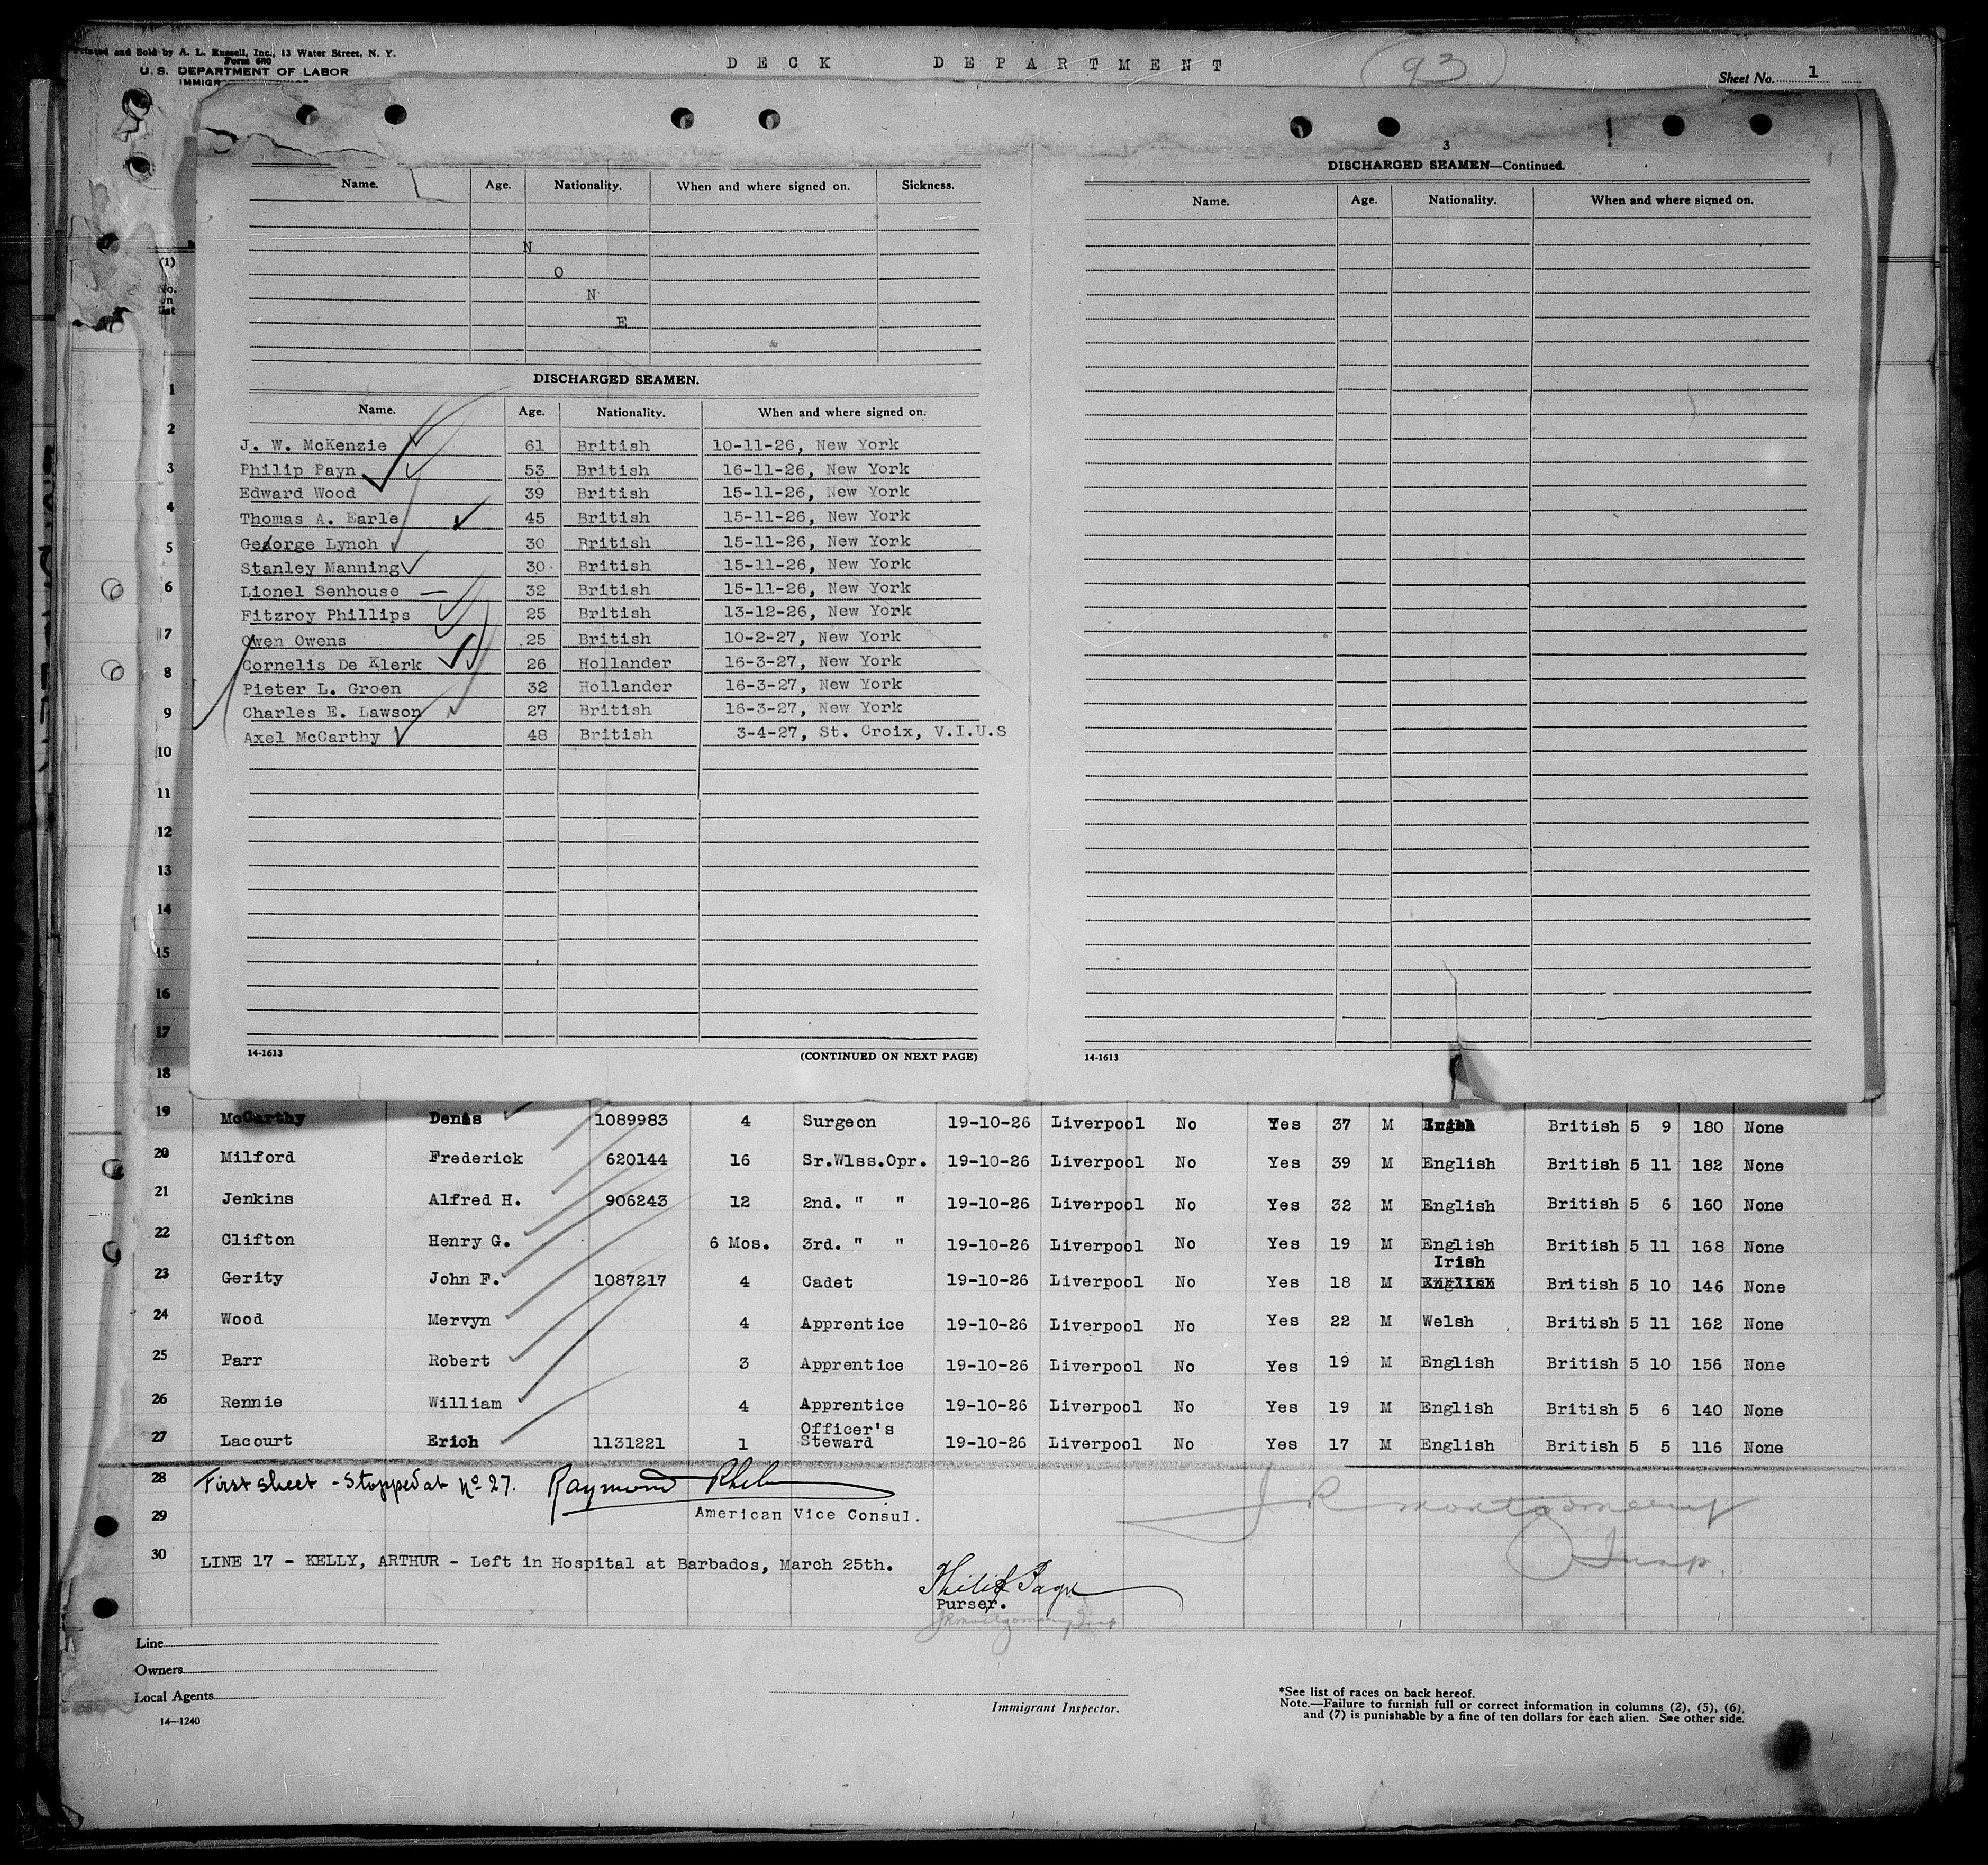 Printed and Sold by A. L. Russell, Inc., 13 Water Street, N. Y.
Form 680
U. S. DEPARTMENT OF LABOR
DECK DEPARTMENT
(93)
Sheet No. 1
(1)
No. on List
Name. Age. Nationality. When and where signed on. Sickness.
NONE
DISCHARGED SEAMEN.
Name. Age. Nationality. When and where signed on.
J. W. McKenzie 61 British 10-11-26, New York
Philip Payn 53 British 16-11-26, New York
Edward Wood 39 British 15-11-26, New York
Thomas A. Earle 45 British 15-11-26, New York
George Lynch 30 British 15-11-26, New York
Stanley Manning 30 British 15-11-26, New York
Lionel Senhouse 32 British 15-11-26, New York
Fitzroy Phillips 25 British 13-12-26, New York
Owen Owens 25 British 10-2-27, New York
Cornelis De Klerk 26 Hollander 16-3-27, New York
Pieter L. Groen 32 Hollander 16-3-27, New York
Charles E. Lawson 27 British 16-3-27, New York
Axel McCarthy 48 British 3-4-27, St. Croix, V.I.U.S
14-1613 (CONTINUED ON NEXT PAGE)
3
DISCHARGED SEAMEN—Continued.
Name. Age. Nationality. When and where signed on.
14-1613
1
2
3
4
5
6
7
8
9
10
11
12
13
14
15
16
17
18
19 McCarthy Denis 1089983 4 Surgeon 19-10-26 Liverpool No Yes 37 M Irish British 5 9 180 None
20 Milford Frederick 620144 16 Sr.Wlss.Opr. 19-10-26 Liverpool No Yes 39 M English British 5 11 182 None
21 Jenkins Alfred H. 906243 12 2nd. " " 19-10-26 Liverpool No Yes 32 M English British 5 6 160 None
22 Clifton Henry G. 6 Mos. 3rd. " " 19-10-26 Liverpool No Yes 19 M English British 5 11 168 None
Irish
23 Gerity John F. 1087217 4 Cadet 19-10-26 Liverpool No Yes 18 M English British 5 10 146 None
24 Wood Mervyn 4 Apprentice 19-10-26 Liverpool No Yes 22 M Welsh British 5 11 162 None
25 Parr Robert 3 Apprentice 19-10-26 Liverpool No Yes 19 M English British 5 10 156 None
26 Rennie William 4 Apprentice 19-10-26 Liverpool No Yes 19 M English British 5 6 140 None
27 Lacourt Erich 1131221 1 Officer's Steward 19-10-26 Liverpool No Yes 17 M English British 5 5 116 None
28 First sheet - Stopped at No 27. Raymond
J R Montgomery
29 American Vice Consul.
Insp.
30 LINE 17 - KELLY, ARTHUR - Left in Hospital at Barbados, March 25th.
Philip
Purser.
JR Montgomery Insp
Line
Owners
Local Agents
14-1240
Immigrant Inspector.
*See list of races on back hereof.
Note.—Failure to furnish full or correct information in columns (2), (5), (6),
and (7) is punishable by a fine of ten dollars for each alien. See other side.